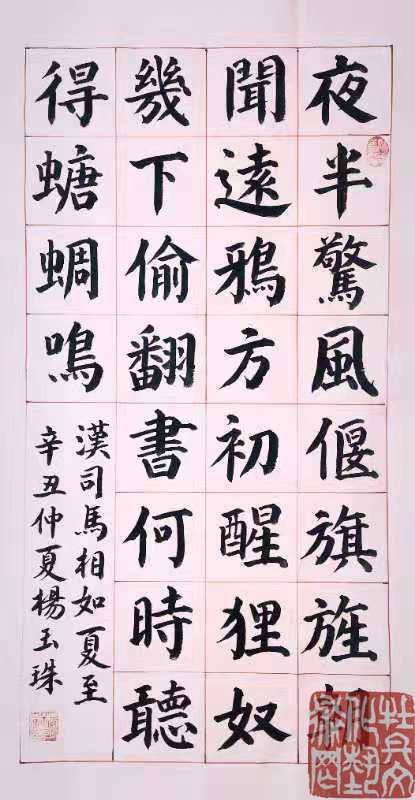 夜半驚風偃旗旌朝
聞遠鴉方初醒狸奴
幾下偷翻書何時聽
得螗蜩鳴
漢司馬相如夏至
辛丑仲夏楊玉珠